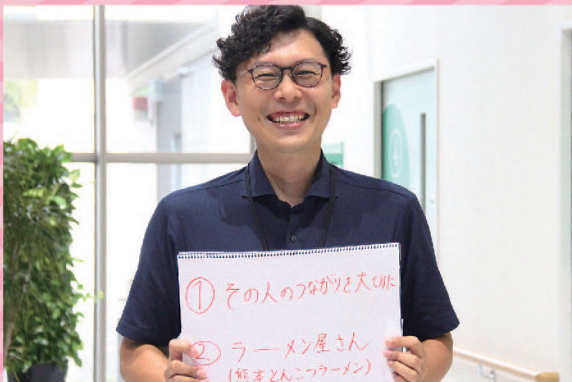 ① その人のつながりを大切に
② ラーメン屋さん
(熊本とんこつラーメン)